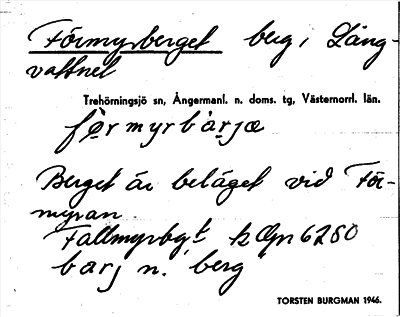 Förmyrberget berg, Lång-
vattnet
Trehörningsjö sn, Ångermanl. n. doms. tg, Västernorrl. län.
førmyrbàrjæ
Berget är beläget vid För-
myran.
Fallmyrbgt k Opn 6280
barj n. berg
TORSTEN BURGMAN 1946.